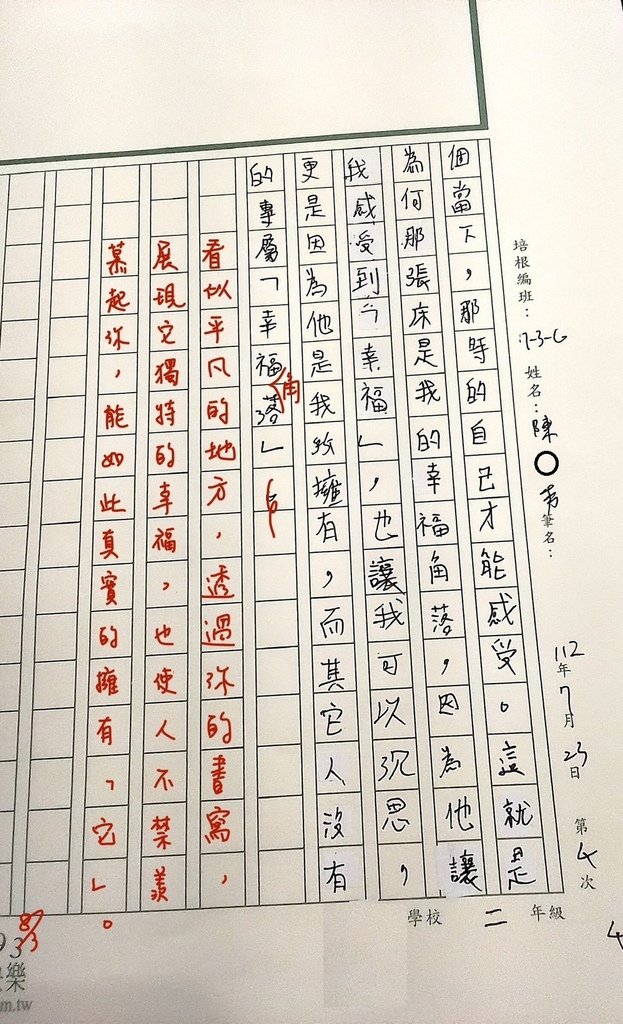 培根編班：17-3-G 姓名：陳 筆名： 112年7月23日 第4次
個當下，那時的自己才能感受。這就是
為何那張床是我的幸福角落，因為他讓
我感受到「幸福」，也讓我可以沉思，
更是因為他是我所擁有，而其它人沒有
的專屬「幸福落」
角
看似平凡的地方，透過你的書寫，
展現它獨特的幸福，也使人不禁羨
慕起你，能如此真實的擁有「它」。
學校 二 年級
8/3
93
樂
m.tw